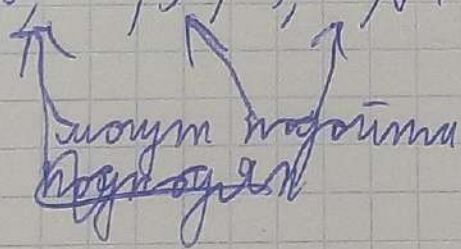 могут подойти
подходят